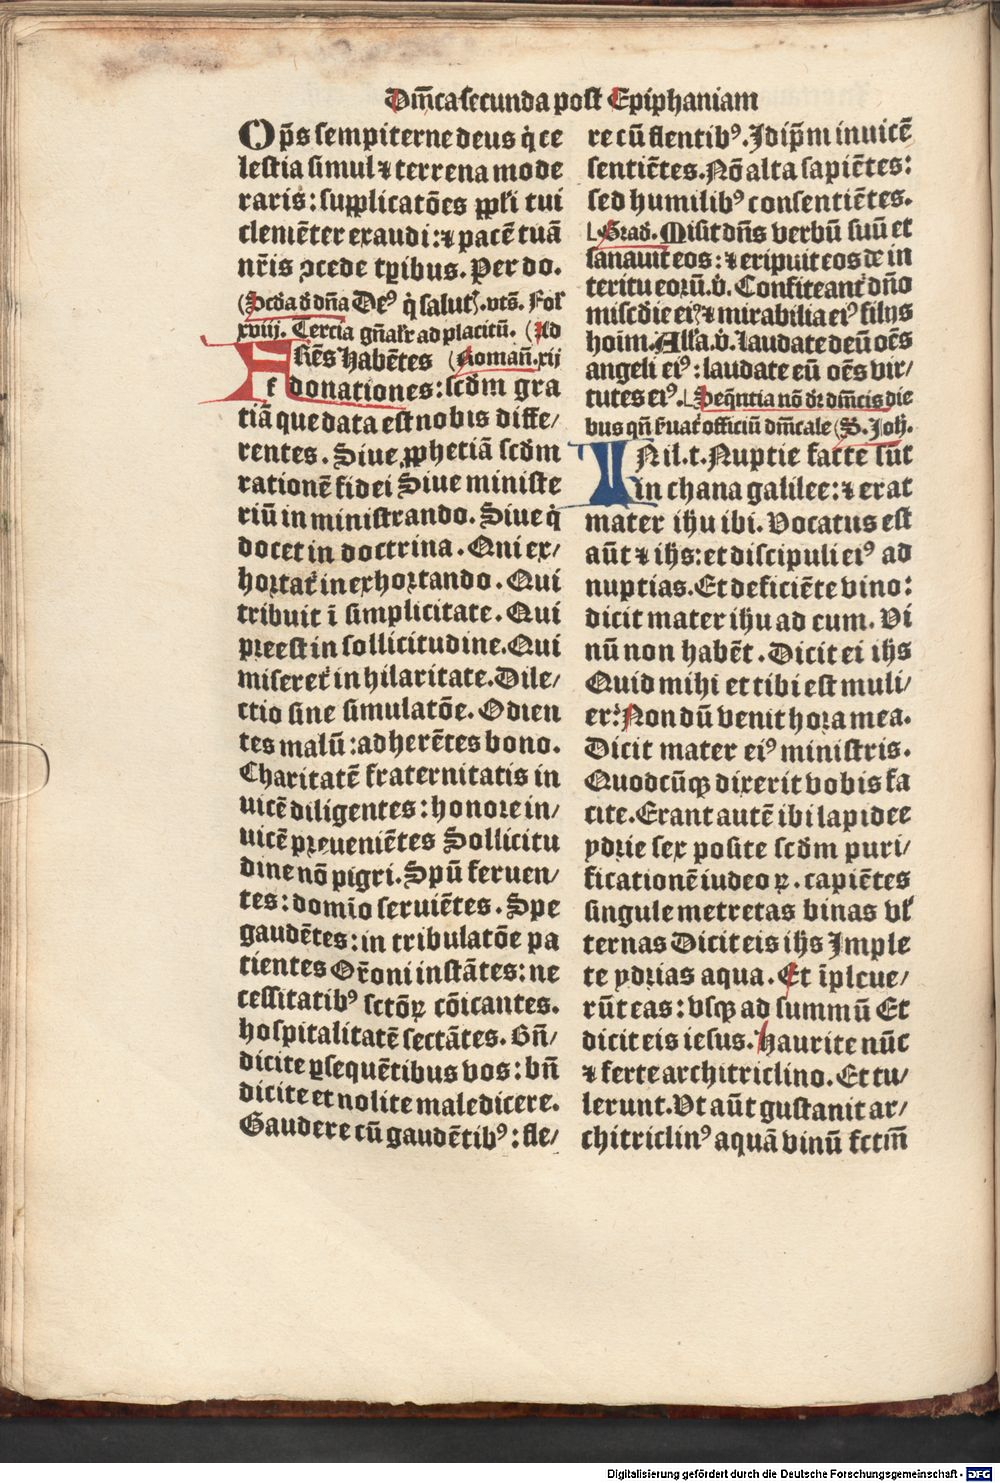 Dm̄ca secunda post Epiphaniam
Op̄s sempiterne deus q̇ ce
lestia simul ⁊ terrena mode
raris: supplicatōes ppl'i tui
clemēter exaudi: ⁊ pacē tuā
nr̄is ↄcede tꝑibus. Per do.
(Scd̄a d̄ dn̄a Deꝰ q̇ salut'. vts̄. Fol'
xviij. Tercia gn̄al'r ad placitū. (Ad
FRēs Habētes (Romaň. xij
donationes: scd̄m gra
tiā que data est nobis diffe/
rentes. Siue ꝓphetiā scd̄m
rationē fidei Siue ministe
riū in ministrando. Siue q̇
docet in doctrina. Qui ex/
hoꝛtat' in exhoꝛtando. Qui
tribuit ī simplicitate. Qui
pꝛeest in sollicitudine. Qui
miseret' in hilaritate. Dile/
ctio sine simulatōe. Odien
tes malū: adherētes bono.
Charitatē fraternitatis in
uicē diligentes: honoꝛe in/
uicē pꝛeueniētes Sollicitu
dine nō pigri. Spū feruen/
tes: domīo seruiētes. Spe
gaudētes: in tribulatōe pa
tientes Or̄oni instātes: ne
cessitatibꝰ sctōꝝ cōicantes.
hospitalitatē sectātes. Bn̄/
dicite ꝑsequētibus vos: bn̄
dicite et nolite maledicere.
Gaudere cū gaudētibꝰ: fle/
re cū flentibꝰ. Idip̄m inuicē
sentiētes. Nō alta sapiētes:
sed humilibꝰ consentiētes.
Grad̄. Misit dn̄s verbū suū et
sanauit eos: ⁊ eripuit eos de in
teritu eorū. v̇. Confiteant' dn̄o
miscd̄ie eiꝰ: ⁊ mirabilia eiꝰ filijs
hoim. All'a. v̇. Laudate deū oēs
angeli eiꝰ: laudate eū oēs vir/
tutes eiꝰ. Seq̄ntia nō dr̄ dm̄cis die
bus qn̄ s'uat' officiū dm̄cale (S. Joh̄.
IN il. t. Nuptie facte sūt
in chana galilee: ⁊ erat
mater ihu ibi. Vocatus est
aūt ⁊ ihs: et discipuli eiꝰ ad
nuptias. Et deficiēte vino:
dicit mater ihu ad eum. Vi
nū non habēt. Dicit ei ihs
Quid mihi et tibi est muli/
er: Nondū venit hoꝛa mea.
Dicit mater eiꝰ ministris.
Quodcūqꝫ dixerit vobis fa
cite. Erant autē ibi lapidee
ydꝛie sex posite scd̄m puri/
ficationē iudeoꝝ. capiētes
singule metretas binas vl'
ternas Dicit eis ihs Imple
te ydꝛias aqua. Et īpleue/
rūt eas: vsqꝫ ad summū Et
dicit eis iesus. Haurite nūc
⁊ ferte architriclino. Et tu/
lerunt. Ut aūt gustauit ar/
chitriclinꝰ aquā vinū fctm̄
Digitalisierung gefördert durch die Deutsche Forschungsgemeinschaft - DFG